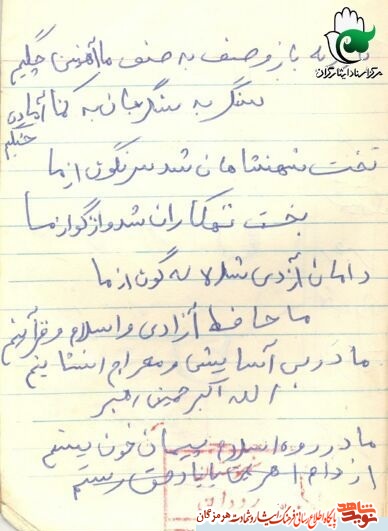 به بازو صف به صف ما آهنین چنگیم
سنگر به سنگر جان به کف آماده
جنگیم
تخت شهنشاهان شد سرنگون از ما
بخت تبهکاران شد واژگون از ما
دامان آزادی شد لاله گون از ما
ما حافظ آزادی و اسلام و قرآنیم
ما در پی آسایش و معراج انسانیم
الله اکبر خمینی رهبر
ما در ره اسلام پیمان خون بستیم
از دام اهریمن با یاد حق رستیم
مرکز اسناد ایثارگران
نوید شاهد
پایگاه اطلاع رسانی فرهنگ ایثار و شهادت هرمزگان